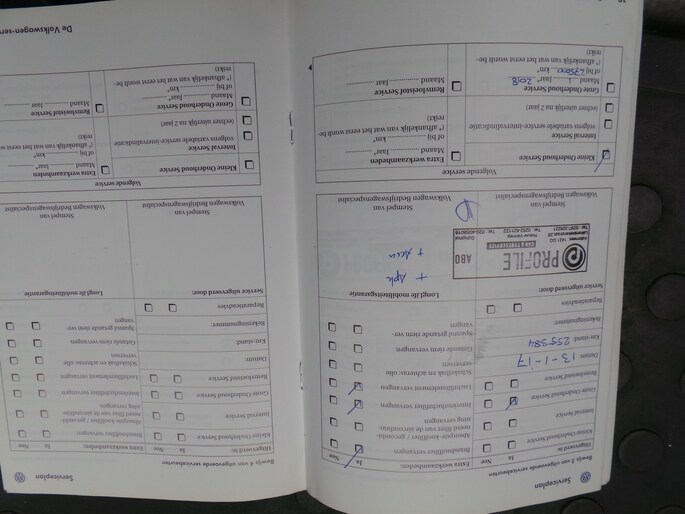 Serviceplan
Bewijs 4 van uitgevoerde servicebeurten
Uitgevoerd is:
Ja
Nee
Kleine Onderhoud Service
Interval Service
Grote Onderhoud Service
Remvloeistof Service
Reparatieadvies
Datum: 13-1-17
Km-stand: 255384
Rekeningnummer:
Service uitgevoerd door:
PROFILE
CAR & TYRESERVICE
ABO
Stempel van
Volkswagen Bedrijfswagenspecialist
Extra werkzaamheden:
Ja
Nee
Brandstoffilter vervangen
Interieurluchtfilter vervangen
Luchtfilterelement vervangen
Schakelbak en achteras: olie
verversen
Getande riem vervangen
Spanrol getande riem ver-
vangen
LongLife mobiliteitsgarantie
+ Apk
Stempel van
Volkswagen Bedrijfswagenspecialist
Volgende service
Kleine Onderhoud Service
Interval Service
volgens variabele service-intervalindicatie
(echter uiterlijk na 2 jaar)
Grote Onderhoud Service
Maand 1 Jaar* 2018
of bij 275000 km*
(* afhankelijk van wat het eerst wordt be-
reikt)
Extra werkzaamheden
Maand Jaar*
of bij km*
Remvloeistof Service
Maand Jaar
Serviceplan
Bewijs 4 van uitgevoerde servicebeurten
Uitgevoerd is:
Ja
Nee
Kleine Onderhoud Service
Interval Service
Grote Onderhoud Service
Remvloeistof Service
Datum:
Km-stand:
Rekeningnummer:
Reparatieadvies
Service uitgevoerd door:
Stempel van
Volkswagen Bedrijfswagenspecialist
Extra werkzaamheden:
Ja
Nee
Brandstoffilter vervangen
Interieurluchtfilter vervangen
Luchtfilterelement vervangen
Schakelbak en achteras: olie
verversen
Getande riem vervangen
Spanrol getande riem ver-
vangen
LongLife mobiliteitsgarantie
Stempel van
Volkswagen Bedrijfswagenspecialist
Volgende service
Kleine Onderhoud Service
Interval Service
volgens variabele service-intervalindicatie
(echter uiterlijk na 2 jaar)
Grote Onderhoud Service
Maand Jaar*
of bij km*
(* afhankelijk van wat het eerst wordt be-
reikt)
Extra werkzaamheden
Maand
of bij km*
Remvloeistof Service
Maand Jaar
De Volkswagen-ser